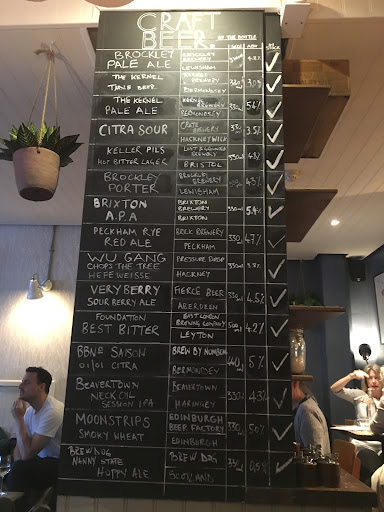 CRAFT
BEER
BY THE BOTTLE
SIZE ABV
BROCKLEY PALE ALE
BROCKLEY BREWERY LEWISHAM
4.2%
THE KERNEL TABLE BEER
KERNEL BREWERY BERMONDSEY
THE KERNEL PALE ALE
KERNEL BREWERY BERMONDSEY
5.4%
CITRA SOUR
HACKNEY WICK
3.5%
KELLER PILS HOP BITTER LAGER
LOST & GROUNDED BREWERY BRISTOL
BROCKLEY PORTER
BROCKLEY BREWERY LEWISHAM
BRIXTON A.P.A
BRIXTON BREWERY BRIXTON
330ml 5.4%
PECKHAM RYE RED ALE
BRICK BREWERY PECKHAM
330ml 4.7%
WU GANG CHOPS THE TREE HEFEWEISSE
PRESSURE DROP HACKNEY
330ml
VERY BERRY SOUR BERRY ALE
FIERCE BEER ABERDEEN
330ml 4.5%
FOUNDATION BEST BITTER
EAST LONDON BREWING COMPANY LEYTON
500ml 4.2%
BBNo SAISON 01/01 CITRA
BREW BY NUMBERS BERMONDSEY
5%
BEAVERTOWN NECK OIL SESSION IPA
BEAVERTOWN HARINGEY
330ml 4.3%
MOONSTRIPS SMOKY WHEAT
EDINBURGH BEER FACTORY EDINBURGH
330ml 5.0%
BREWDOG NANNY STATE HOPPY ALE
BREW DOG SCOTLAND
0.5%